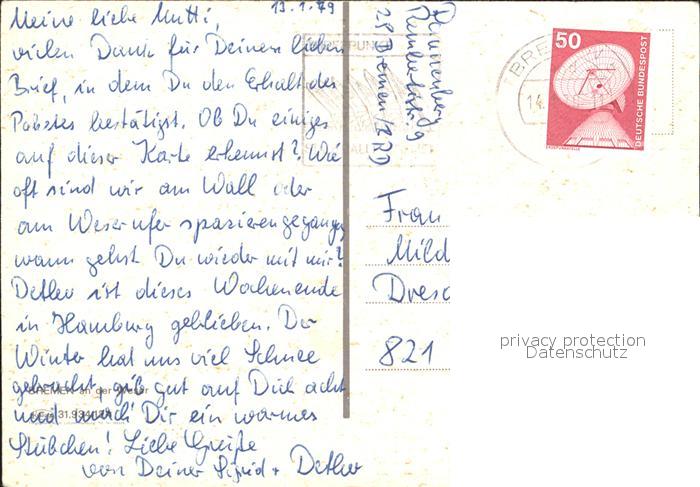 13.1.79
Meine liebe Mutti,
vielen Dank für Deinen lieben
Brief, in dem Du den Erhalt des
Paketes bestätigst. Ob Du einiges
auf dieser Karte erkennst? Wie
oft sind wir am Wall oder
am Weserufer spazierengegangen,
wann gehst Du wieder mit mir?
Detlev ist dieses Wochenende
in Hamburg geblieben. Der
Winter hat uns viel Schnee
gebracht, gib gut auf Dich acht
und mach' Dir ein warmes
Stübchen! Liebe Grüße
von Deiner Sigrid + Detlev
BREMEN an der Weser
28 Bremen/BRD
BRE
14.
50
DEUTSCHE BUNDESPOST
Frau
Mild
Dresd
821
privacy protection
Datenschutz